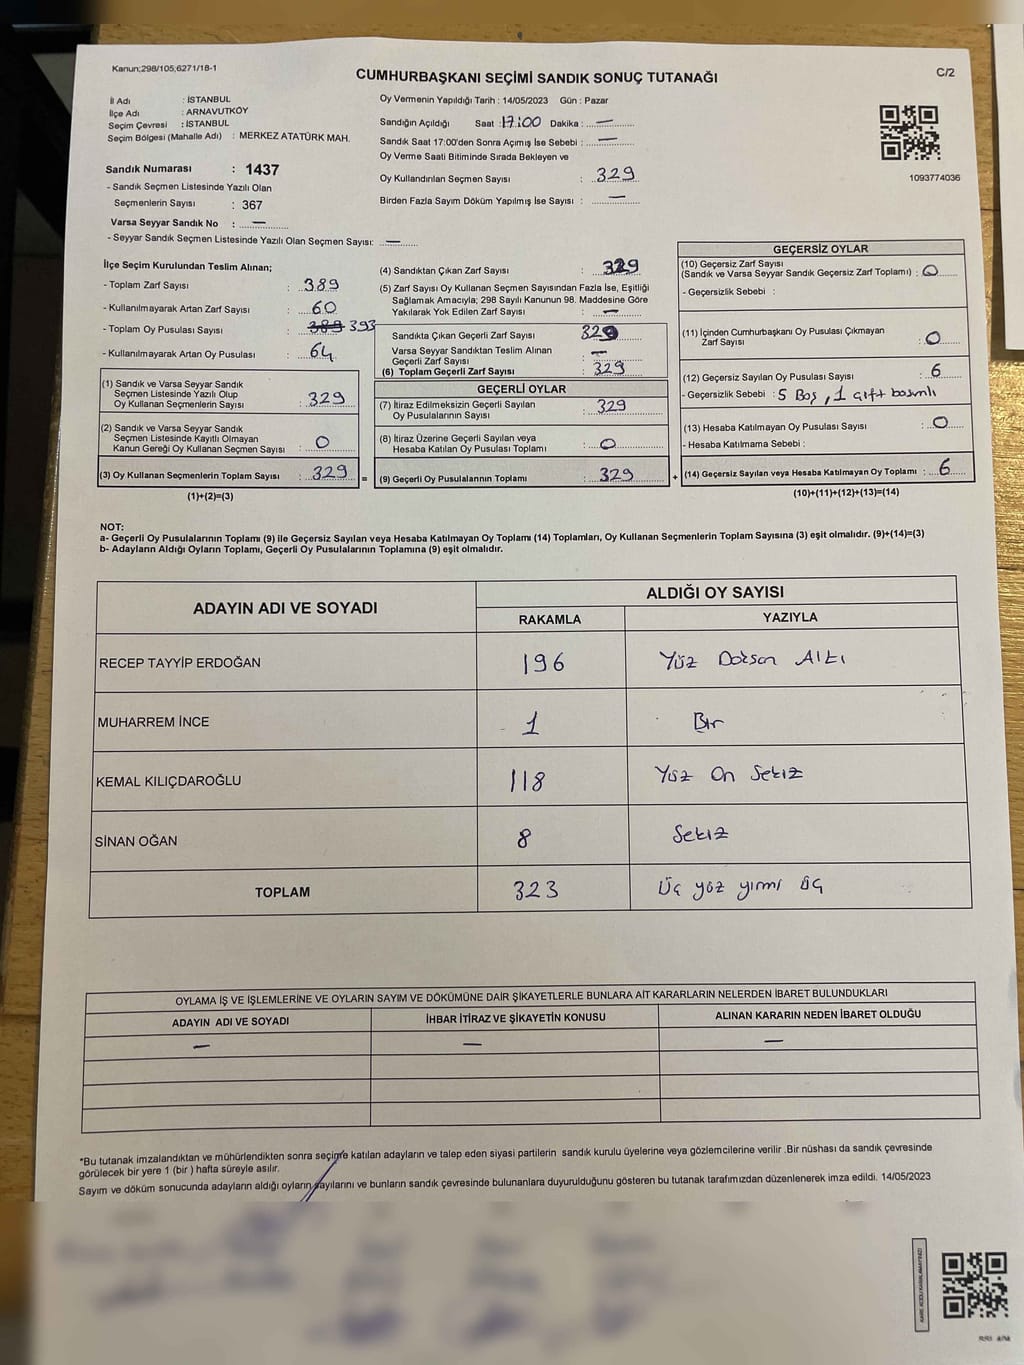 Kanun;298/105;6271/18-1
CUMHURBAŞKANI SEÇİMİ SANDIK SONUÇ TUTANAĞI
C/2
İl Adı : İSTANBUL
İlçe Adı : ARNAVUTKÖY
Seçim Çevresi : İSTANBUL
Seçim Bölgesi (Mahalle Adı) : MERKEZ ATATÜRK MAH.
Sandık Numarası : 1437
- Sandık Seçmen Listesinde Yazılı Olan
Seçmenlerin Sayısı : 367
Varsa Seyyar Sandık No : —
- Seyyar Sandık Seçmen Listesinde Yazılı Olan Seçmen Sayısı: —
Oy Vermenin Yapıldığı Tarih : 14/05/2023 Gün : Pazar
Sandığın Açıldığı Saat : 17:00 Dakika : —
Sandık Saat 17:00'den Sonra Açımış İse Sebebi : —
Oy Verme Saati Bitiminde Sırada Bekleyen ve
Oy Kullandırılan Seçmen Sayısı : 329
Birden Fazla Sayım Döküm Yapılmış İse Sayısı : —
1093774036
İlçe Seçim Kurulundan Teslim Alınan;
- Toplam Zarf Sayısı : 389
- Kullanılmayarak Artan Zarf Sayısı : 60
- Toplam Oy Pusulası Sayısı : 389 393
- Kullanılmayarak Artan Oy Pusulası : 64
(1) Sandık ve Varsa Seyyar Sandık
Seçmen Listesinde Yazılı Olup
Oy Kullanan Seçmenlerin Sayısı : 329
(2) Sandık ve Varsa Seyyar Sandık
Seçmen Listesinde Kayıtlı Olmayan
Kanun Gereği Oy Kullanan Seçmen Sayısı : 0
(3) Oy Kullanan Seçmenlerin Toplam Sayısı : 329
(1)+(2)=(3)
(4) Sandıktan Çıkan Zarf Sayısı : 329
(5) Zarf Sayısı Oy Kullanan Seçmen Sayısından Fazla İse, Eşitliği
Sağlamak Amacıyla; 298 Sayılı Kanunun 98. Maddesine Göre
Yakılarak Yok Edilen Zarf Sayısı : —
Sandıkta Çıkan Geçerli Zarf Sayısı 329
Varsa Seyyar Sandıktan Teslim Alınan
Geçerli Zarf Sayısı : —
(6) Toplam Geçerli Zarf Sayısı : 329
GEÇERLİ OYLAR
(7) İtiraz Edilmeksizin Geçerli Sayılan
Oy Pusulalarının Sayısı : 329
(8) İtiraz Üzerine Geçerli Sayılan veya
Hesaba Katılan Oy Pusulası Toplamı : 0
= (9) Geçerli Oy Pusulalarının Toplamı : 329
GEÇERSİZ OYLAR
(10) Geçersiz Zarf Sayısı
(Sandık ve Varsa Seyyar Sandık Geçersiz Zarf Toplamı) : 0
- Geçersizlik Sebebi :
(11) İçinden Cumhurbaşkanı Oy Pusulası Çıkmayan
Zarf Sayısı : 0
(12) Geçersiz Sayılan Oy Pusulası Sayısı : 6
- Geçersizlik Sebebi : 5 Boş, 1 çift basımlı
(13) Hesaba Katılmayan Oy Pusulası Sayısı : 0
- Hesaba Katılmama Sebebi :
+ (14) Geçersiz Sayılan veya Hesaba Katılmayan Oy Toplamı : 6
(10)+(11)+(12)+(13)=(14)
NOT:
a- Geçerli Oy Pusulalarının Toplamı (9) ile Geçersiz Sayılan veya Hesaba Katılmayan Oy Toplamı (14) Toplamları, Oy Kullanan Seçmenlerin Toplam Sayısına (3) eşit olmalıdır. (9)+(14)=(3)
b- Adayların Aldığı Oyların Toplamı, Geçerli Oy Pusulalarının Toplamına (9) eşit olmalıdır.
ADAYIN ADI VE SOYADI
ALDIĞI OY SAYISI
RAKAMLA YAZIYLA
RECEP TAYYİP ERDOĞAN 196 Yüz Doksan Altı
MUHARREM İNCE 1 Bir
KEMAL KILIÇDAROĞLU 118 Yüz On Sekiz
SİNAN OĞAN 8 Sekiz
TOPLAM 323 Üç yüz yirmi üç
OYLAMA İŞ VE İŞLEMLERİNE VE OYLARIN SAYIM VE DÖKÜMÜNE DAİR ŞİKAYETLERLE BUNLARA AİT KARARLARIN NELERDEN İBARET BULUNDUKLARI
ADAYIN ADI VE SOYADI İHBAR İTİRAZ VE ŞİKAYETİN KONUSU ALINAN KARARIN NEDEN İBARET OLDUĞU
— — —
*Bu tutanak imzalandıktan ve mühürlendikten sonra seçime katılan adayların ve talep eden siyasi partilerin sandık kurulu üyelerine veya gözlemcilerine verilir .Bir nüshası da sandık çevresinde
görülecek bir yere 1 (bir ) hafta süreyle asılır.
Sayım ve döküm sonucunda adayların aldığı oyların sayılarını ve bunların sandık çevresinde bulunanlara duyurulduğunu gösteren bu tutanak tarafımızdan düzenlenerek imza edildi. 14/05/2023